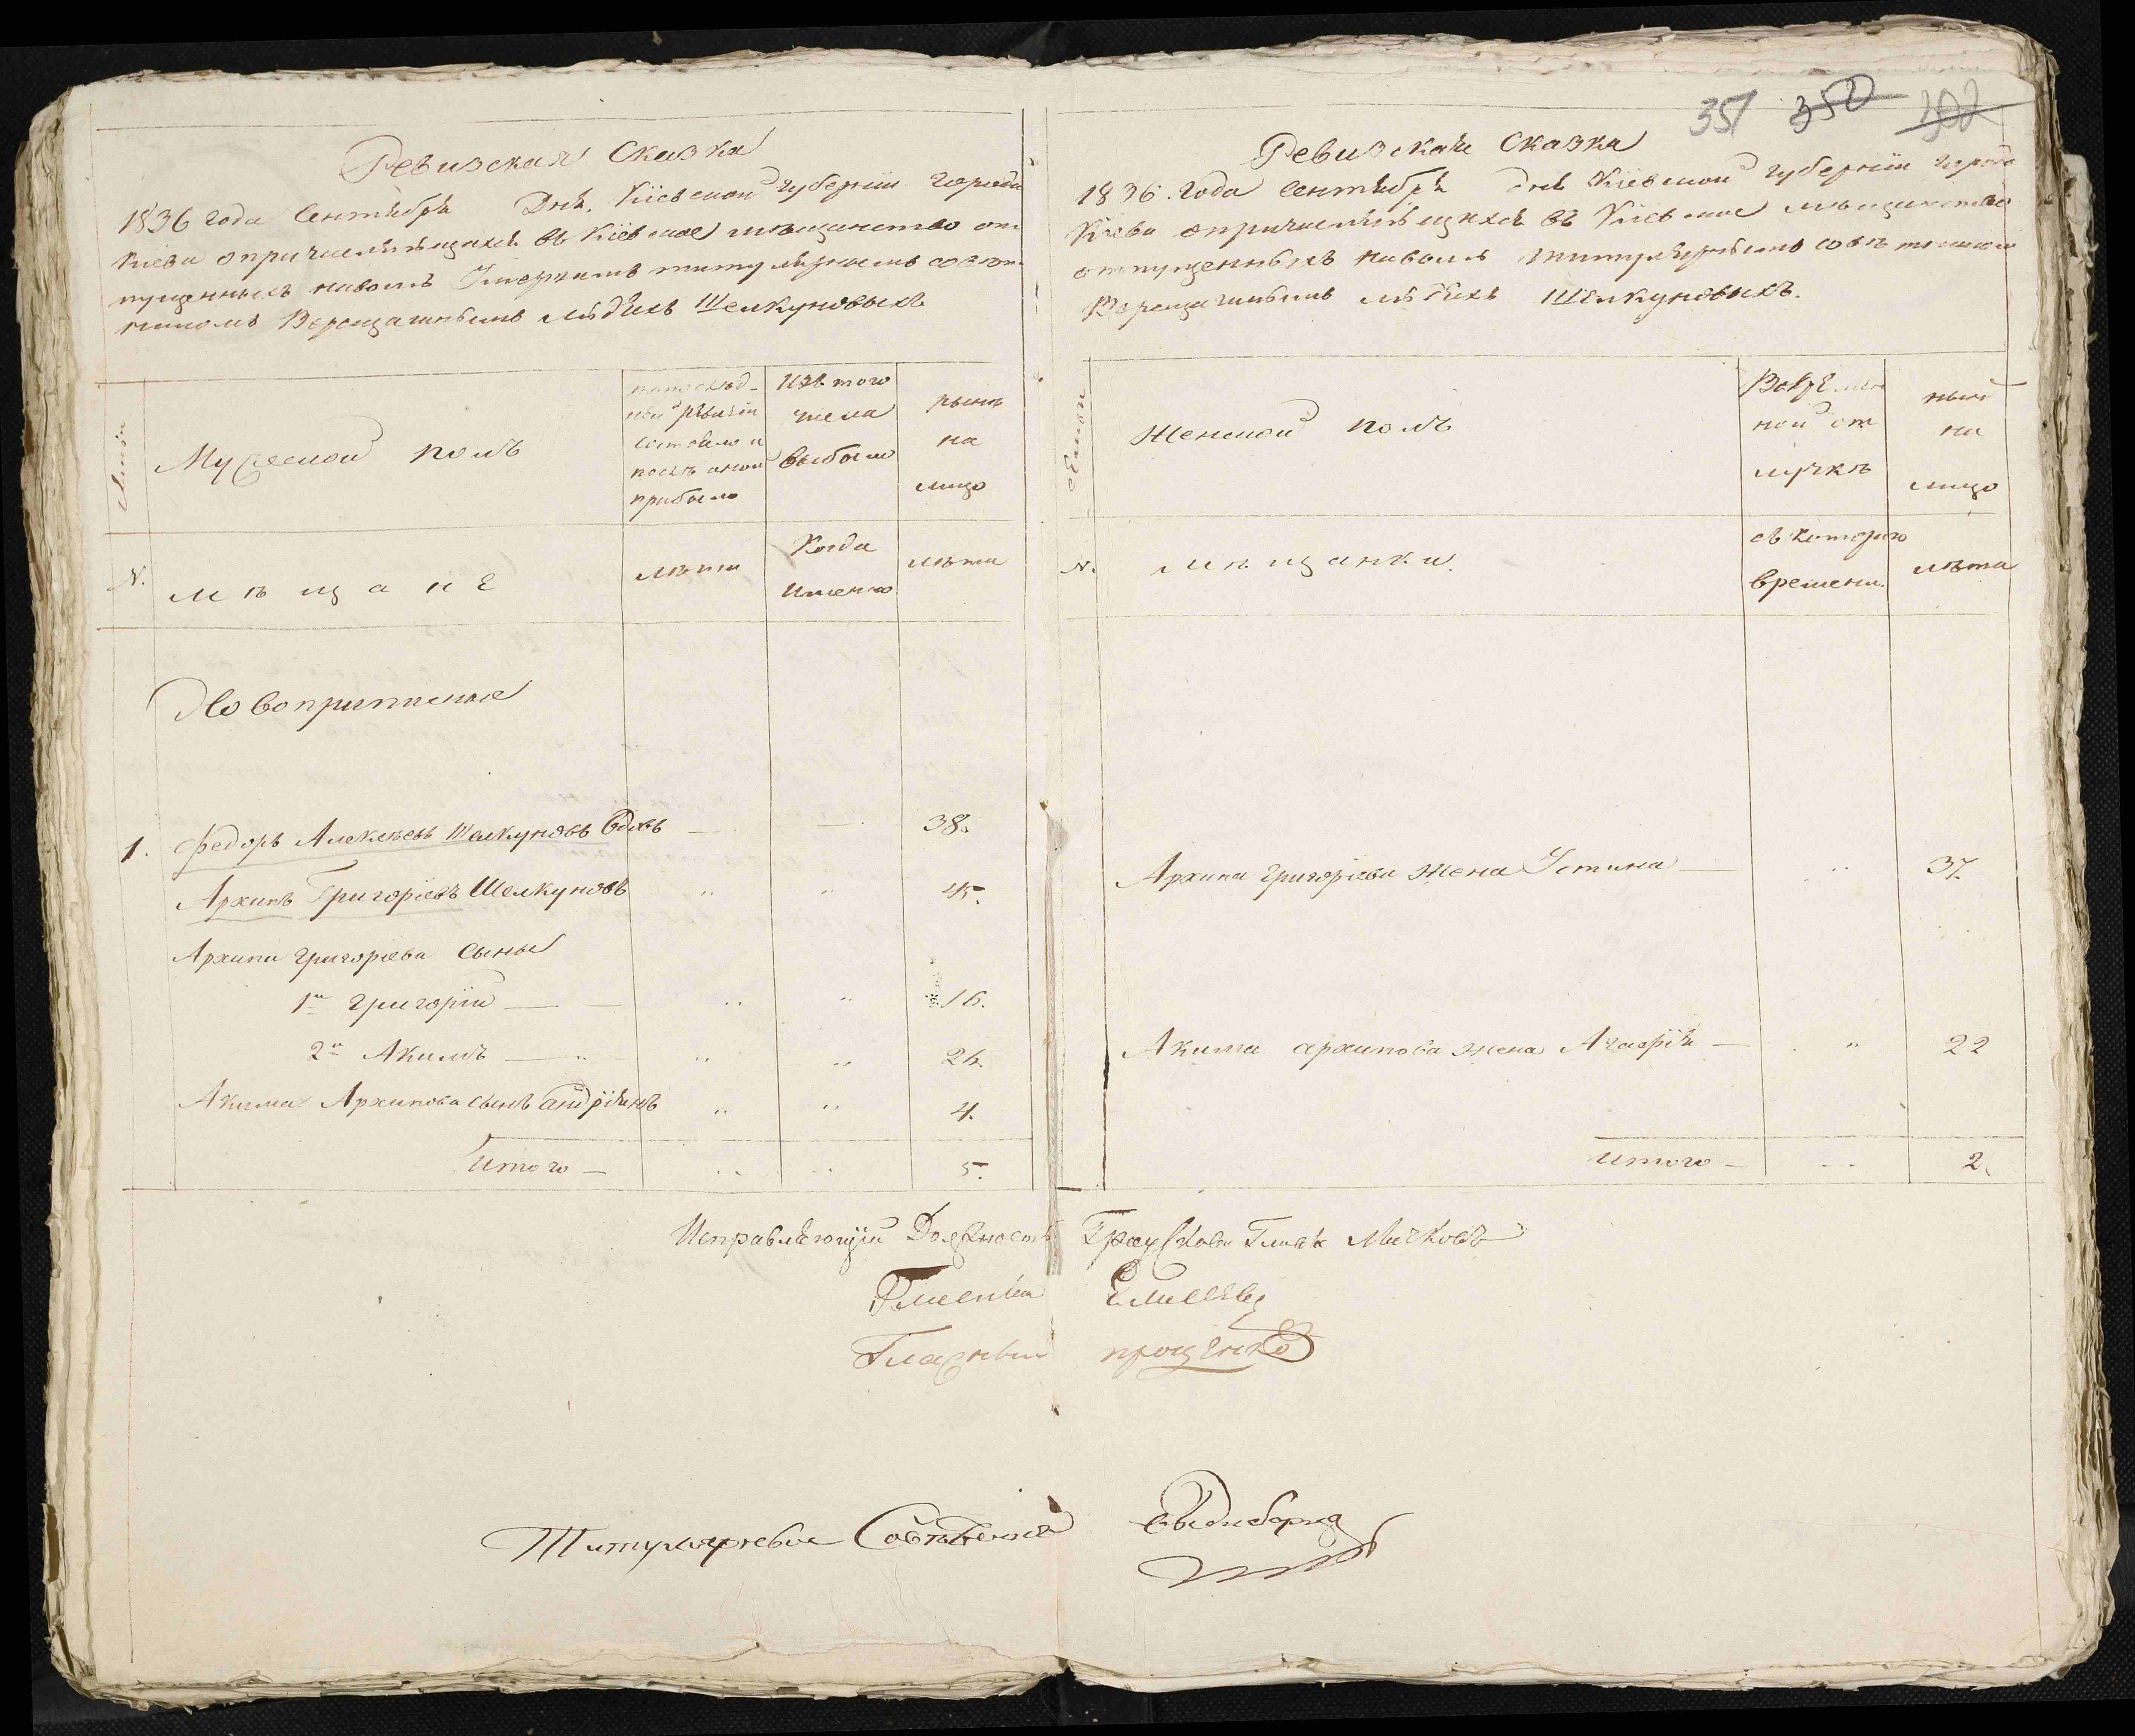 351 350 302
Ревизская Сказка
1836 года Сентября Дня. Кіевской губерніи города
Кіева о причислившихся въ Кіевское мѣщанство от-
пущенныхъ наволю титулярнымъ совѣт-
никомъ Верещагинымъ людяхъ Шелкуновыхъ
Мужеской полъ
попослѣд-
ней ревизіи
состояло и
послѣ оной
прибыло
Изъ того
числа
выбыло
нынѣ
на
лицо
N.
мѣщане
лѣта
Когда
именно
лѣта
Новопричислен
1. Федоръ Алексѣевъ Шелкуновъ вдовъ — — 38.
Архипъ Григоріевъ Шелкуновъ " " 45.
Архипа Григоріева сыны
1й Григорій — — " " 16.
2й Акимъ — " — " " 26.
Акима Архипова сынъ Андріянъ " " 4.
Итого — " " 5.
Ревизская Сказка
1836. года Сентября дня Кіевской губерніи города
Кіева о причислившихся въ Кіевское мѣщанство
отпущенныхъ наволю титулярнымъ совѣтникомъ
Верещагинымъ людяхъ Шелкуновыхъ.
Женской полъ
Вовремян
ной от
лучкѣ
нынѣ
на
лицо
N.
мѣщанки
съ которого
времени.
лѣта
Архипа Григоріева жена Устина — " 37.
Акима архипова жена Агафія — " 22
итого — " 2.
Исправляющій Должность Градскаго Главы
Гласный Елисеевъ
Гласный прощенко
Титулярный Совѣтникъ